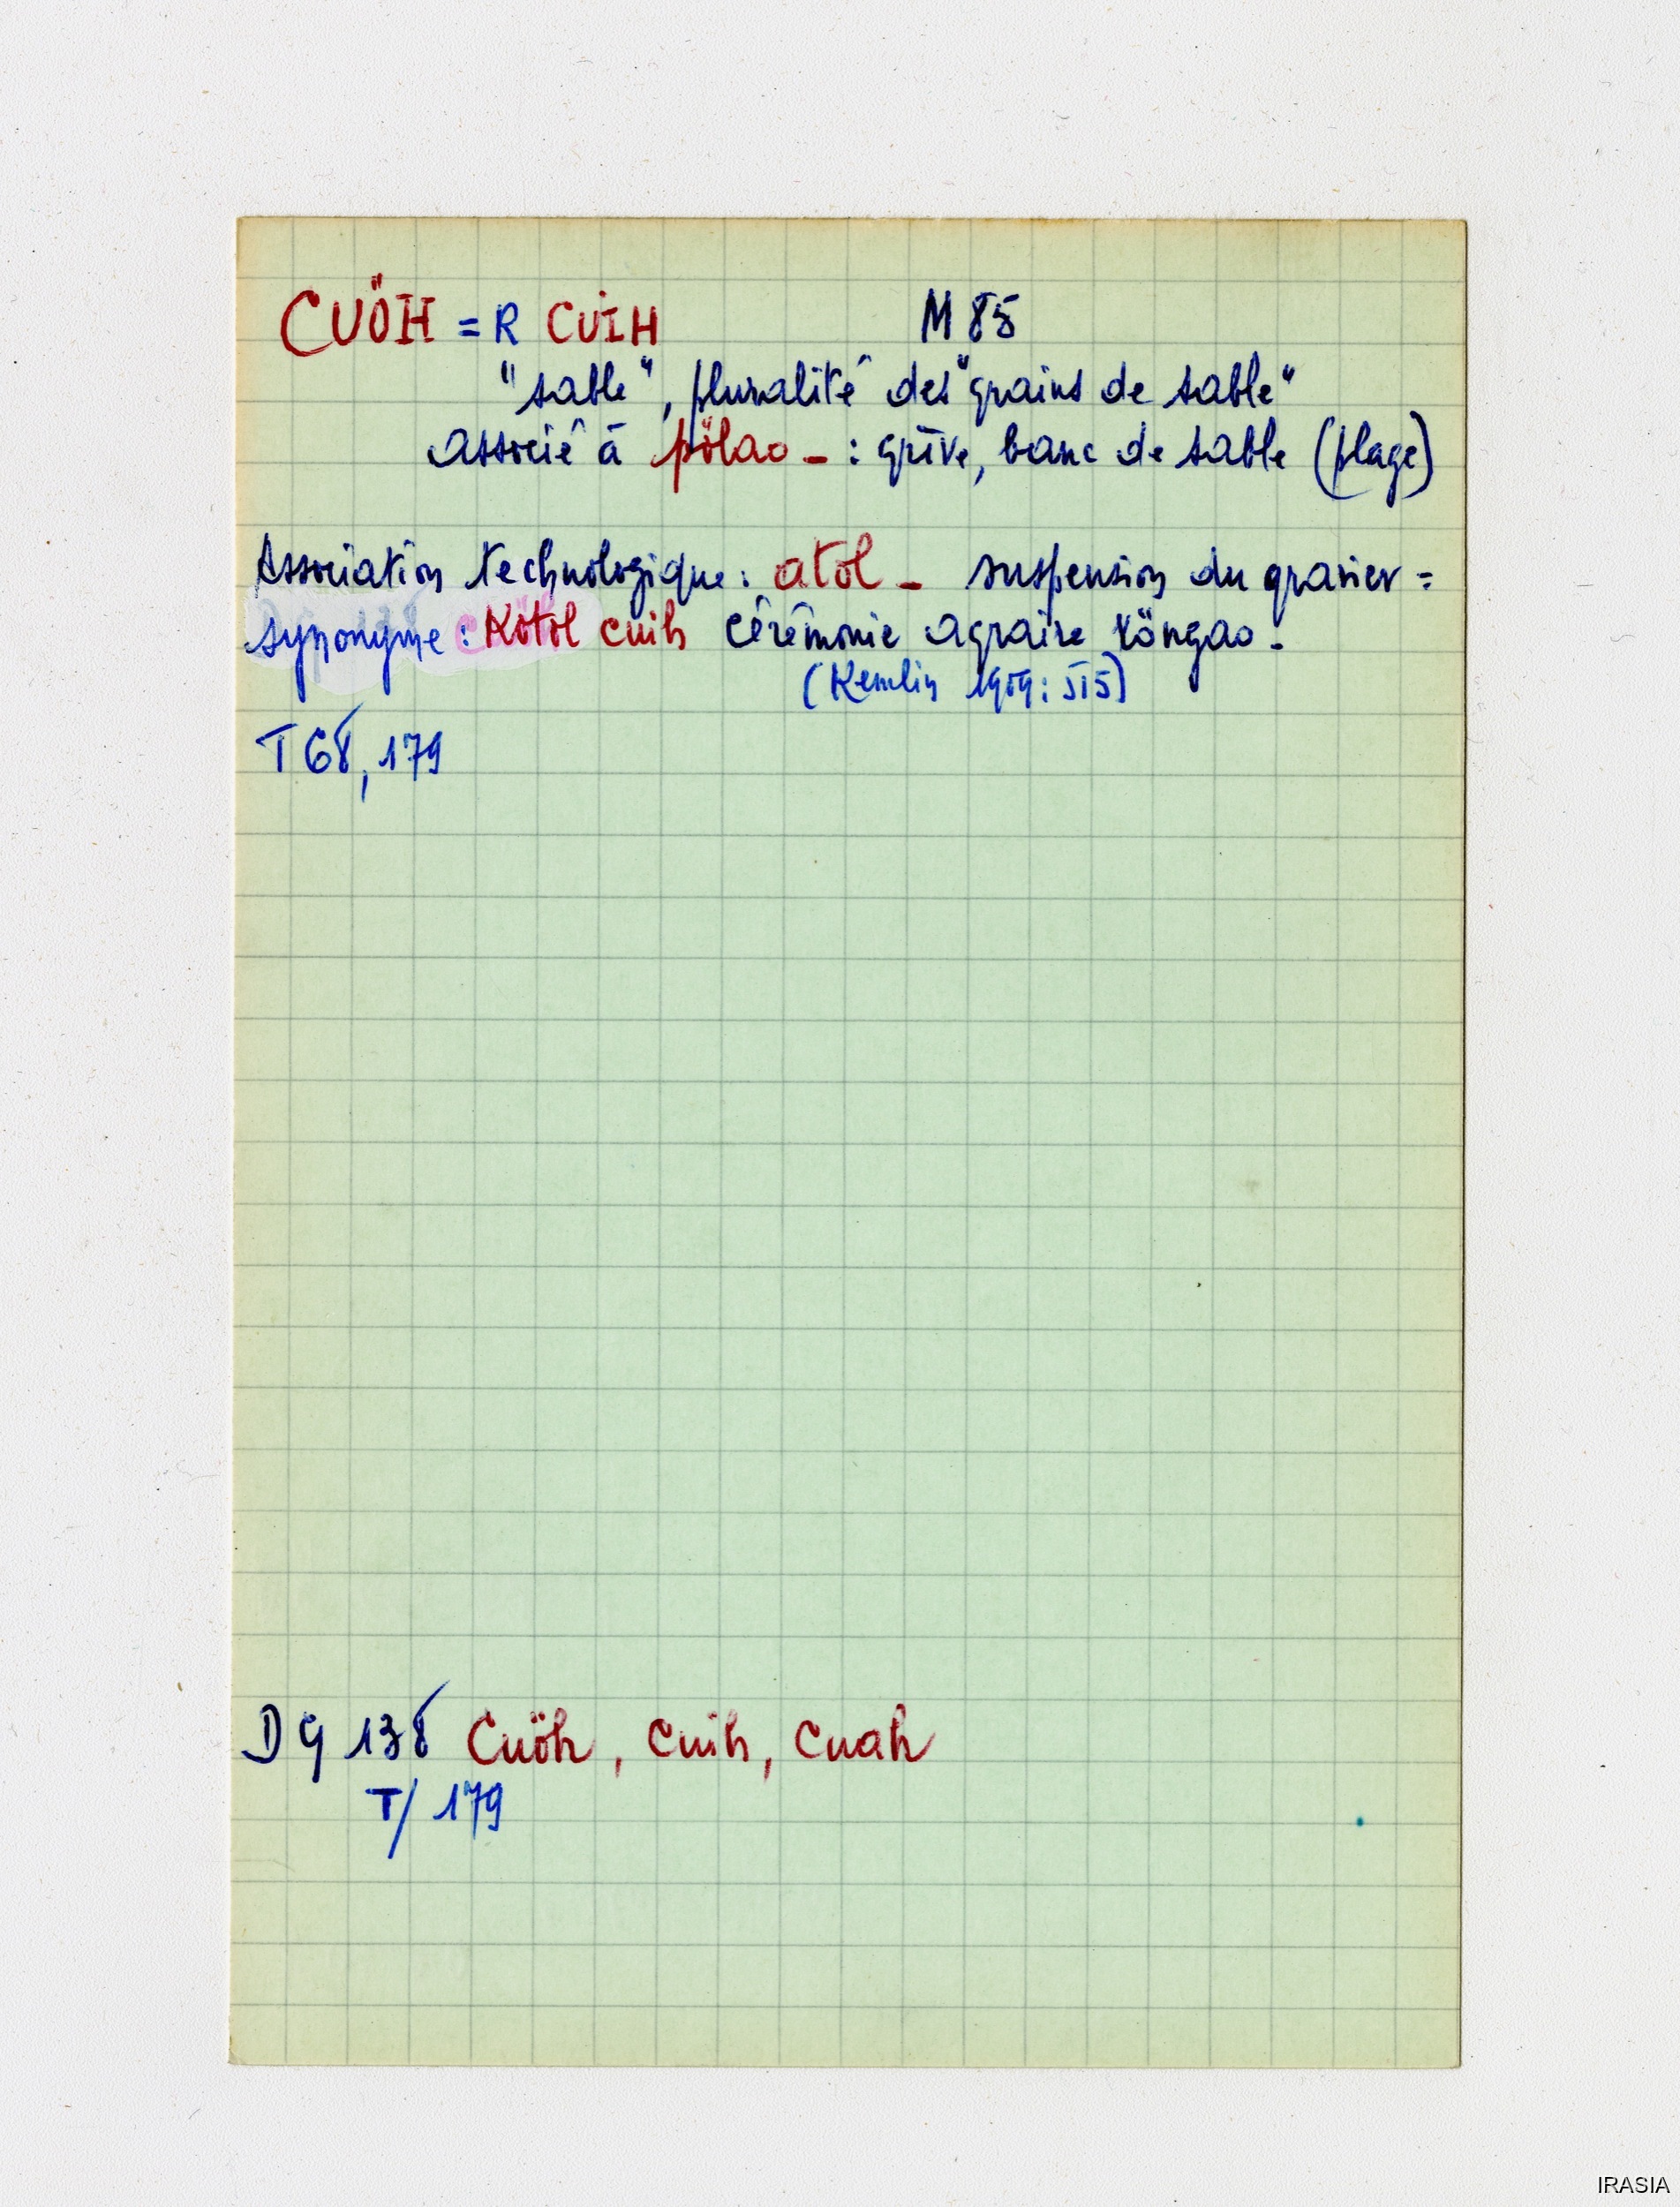 CUÖH = R CUIH M 85
"sable", pluralité des "grains de sable"
associé à pölao _ : grève, banc de sable (plage)
Association technologique : atol _ suspension du gravier =
synonyme : Kötol cuih cérémonie agraire röngao _
(Kemlin 1909 : 515)
T 68, 179
DG 138 Cuöh, cuih, cuah
T/ 179
IRASIA